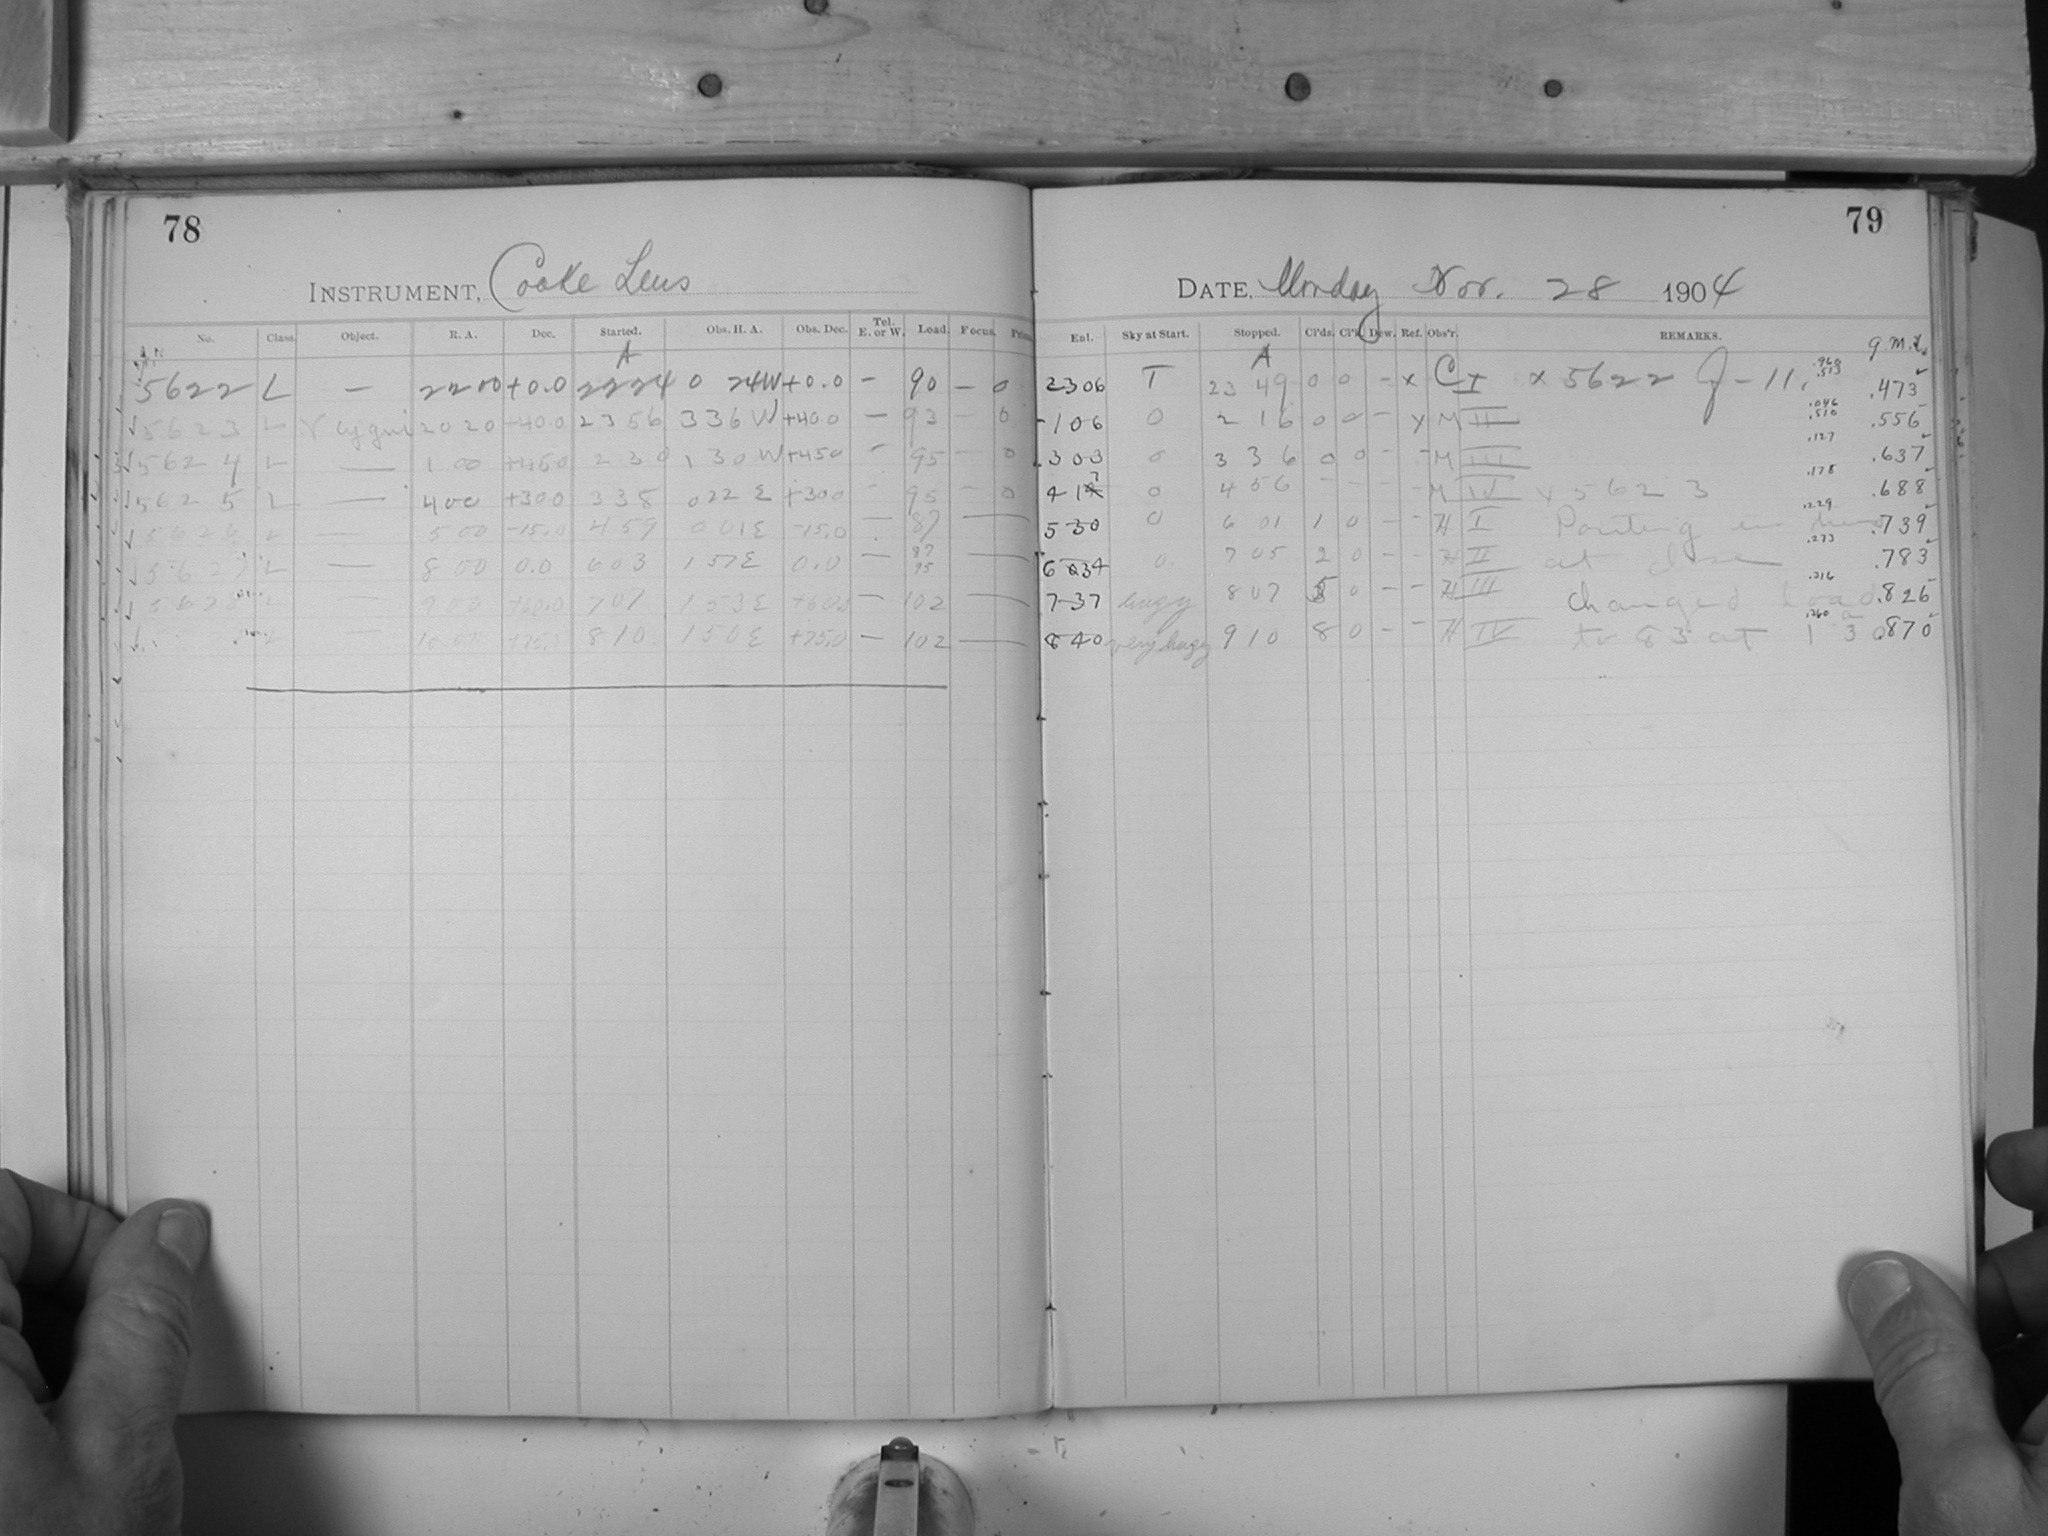 78
INSTRUMENT, Cooke Lens
No. Class. Object. R. A. Dec. Started. Obs. H. A. Obs. Dec. Tel. E. or W. Load. Focus.
A
5622 L — 22 00 +0.0 22 24 0 24W +0.0 – 90 – 0
5623 L γ Cygni 20 20 +40.0 23 56 3 36 W +40.0 – 93 – 0
5624 L — 1 00 +45.0 2 30 1 30 W +45.0 – 95 – 0
5625 L — 4 00 +30.0 3 38 0 22 E +30.0 – 95 – 0
5626 L — 5 00 –15.0 4 59 0 01 E –15.0 – 87 —
5627 L — 8 00 0.0 6 03 1 57 E 0.0 – 87 95 —
5628 L — 9 00 +60.0 7 07 1 53 E +60.0 – 102 —
L — 10 00 +75.0 8 10 1 50 E +75.0 – 102 —
79
DATE, Monday Nov. 28 1904
Enl. Sky at Start. Stopped. Cl'ds. Cl'k. Dew. Ref. Obs'r. REMARKS. G.M.T.
A
23 06 T 23 49 0 0 – x C I x 5622 J – 11. .473
1 06 0 2 16 0 0 – M II .046 .510 .556
3 03 0 3 36 0 0 – – M III .127 .637
4 17 0 4 56 – – – – M IV 5623 .178 .688
5 30 0 6 01 1 0 – – H I Pointing .229 .739
6 34 0 7 05 2 0 – – H II at close .273 .783
7 37 hazy 8 07 5 0 – – H III changed load .316 .826
8 40 very hazy 9 10 8 0 – – H IV to 83 at 1 30 .360 .870